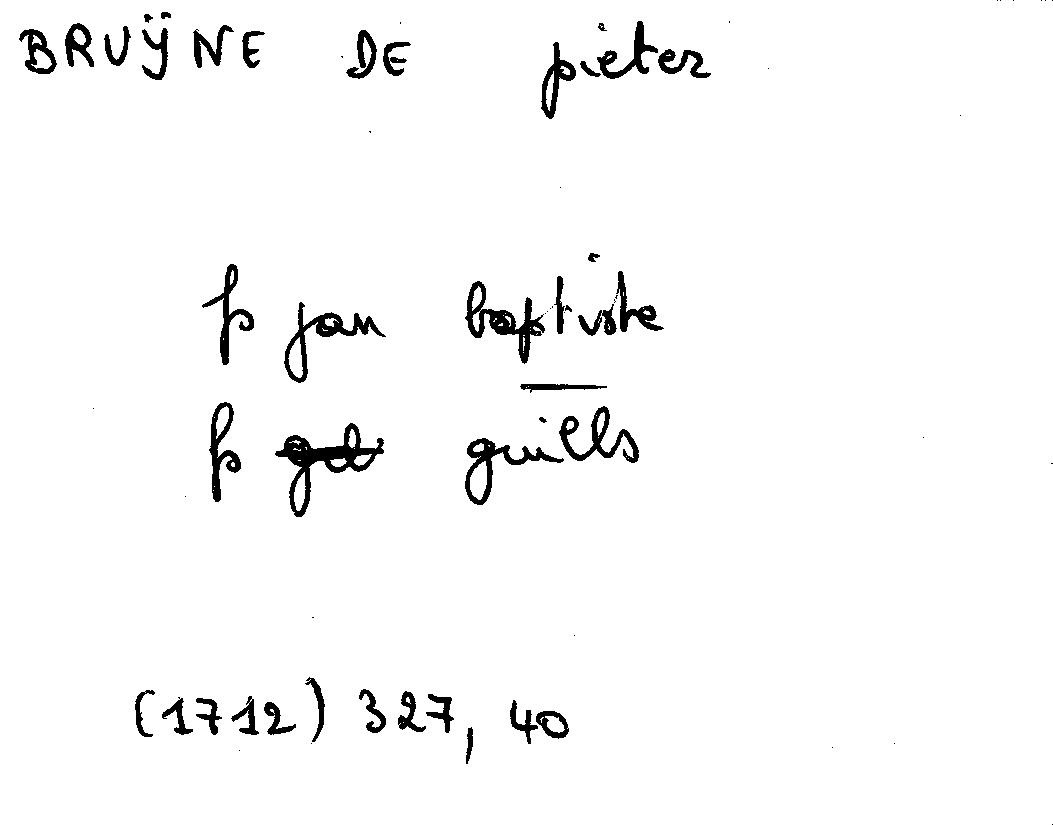 BRUŸNE DE pieter
fs jan baptiste
fs guills
(1712) 327, 40